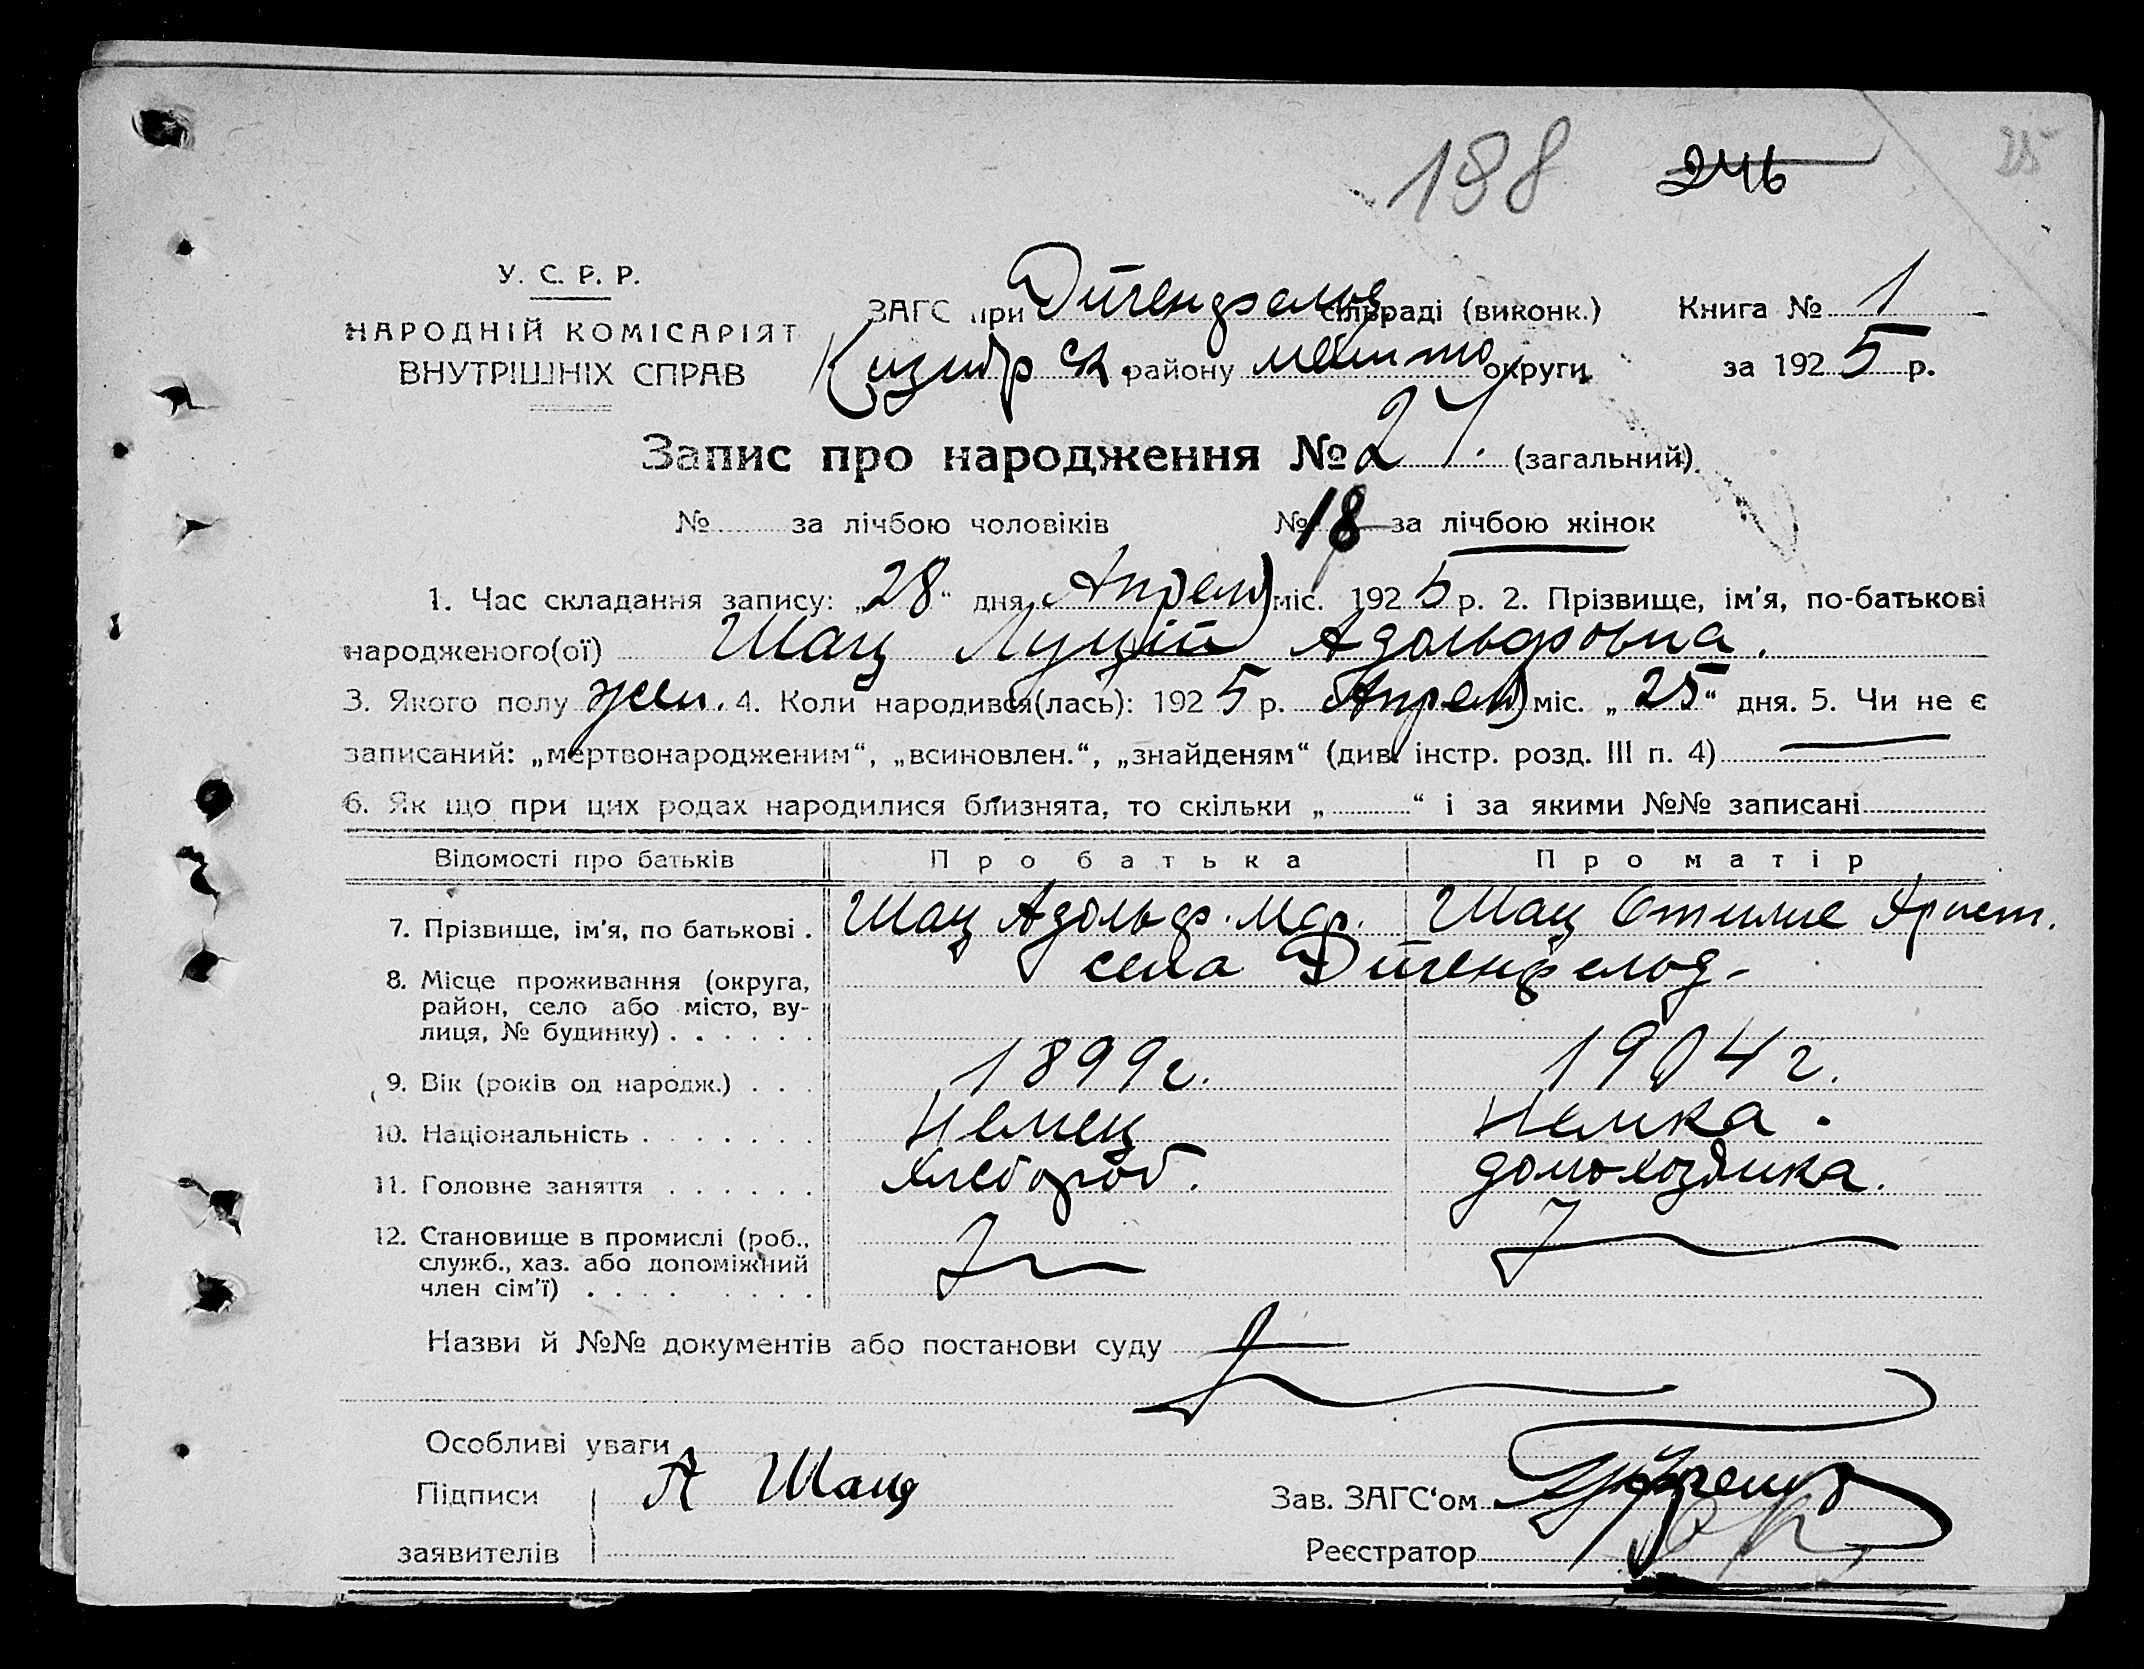 198 246 25
У. С. Р. Р.
НАРОДНІЙ КОМІСАРІЯТ
ВНУТРІШНІХ СПРАВ
ЗАГС при Дитенфельд сільраді (виконк.) Книга № 1
району округи за 1925 р.
Запис про народження № 27. (загальний)
№ за лічбою чоловіків № 18 за лічбою жінок
1. Час складання запису: „28“ дня Апреля міс. 1925 р. 2. Прізвище, ім'я, по-батькові
народженого(ої) Шац Адольфовна.
3. Якого полу жен. 4. Коли народився(лась): 1925 р. Апреля міс. „25“ дня. 5. Чи не є
записаний: „мертвонародженим“, „всиновлен.“, „знайденям“ (див. інстр. розд. III п. 4)
6. Як що при цих родах народилися близнята, то скільки „ “ і за якими №№ записані
Відомості про батьків Про батька Про матір
7. Прізвище, ім'я, по батькові . Шац Адольф. Шац Отилие Христ.
8. Місце проживання (округа, села Дитенфельд-
район, село або місто, ву-
лиця, № будинку) . . . . . .
9. Вік (років од народж.) . . . 1899г. 1904г.
10. Національність . . . . . . . Немец Немка.
11. Головне заняття . . . . . . Хлебороб. домохозяйка.
12. Становище в промислі (роб.,
служб., хаз. або допоміжний
член сім'ї) . . . . . . . .
Назви й №№ документів або постанови суду
Особливі уваги
Підписи А Шац Зав. ЗАГС'ом
заявителів Реєстратор